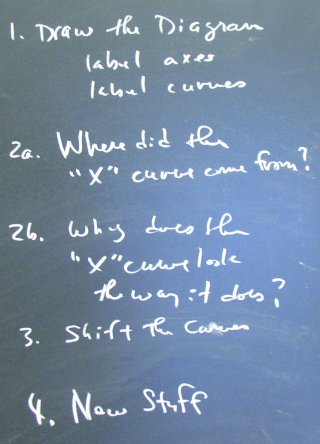 1. Draw the Diagram
label axes
label curves
2a. Where did the
"X" curve come from?
2b. Why does the
"X" curve look
the way it does?
3. Shift The Curves
4. New Stuff